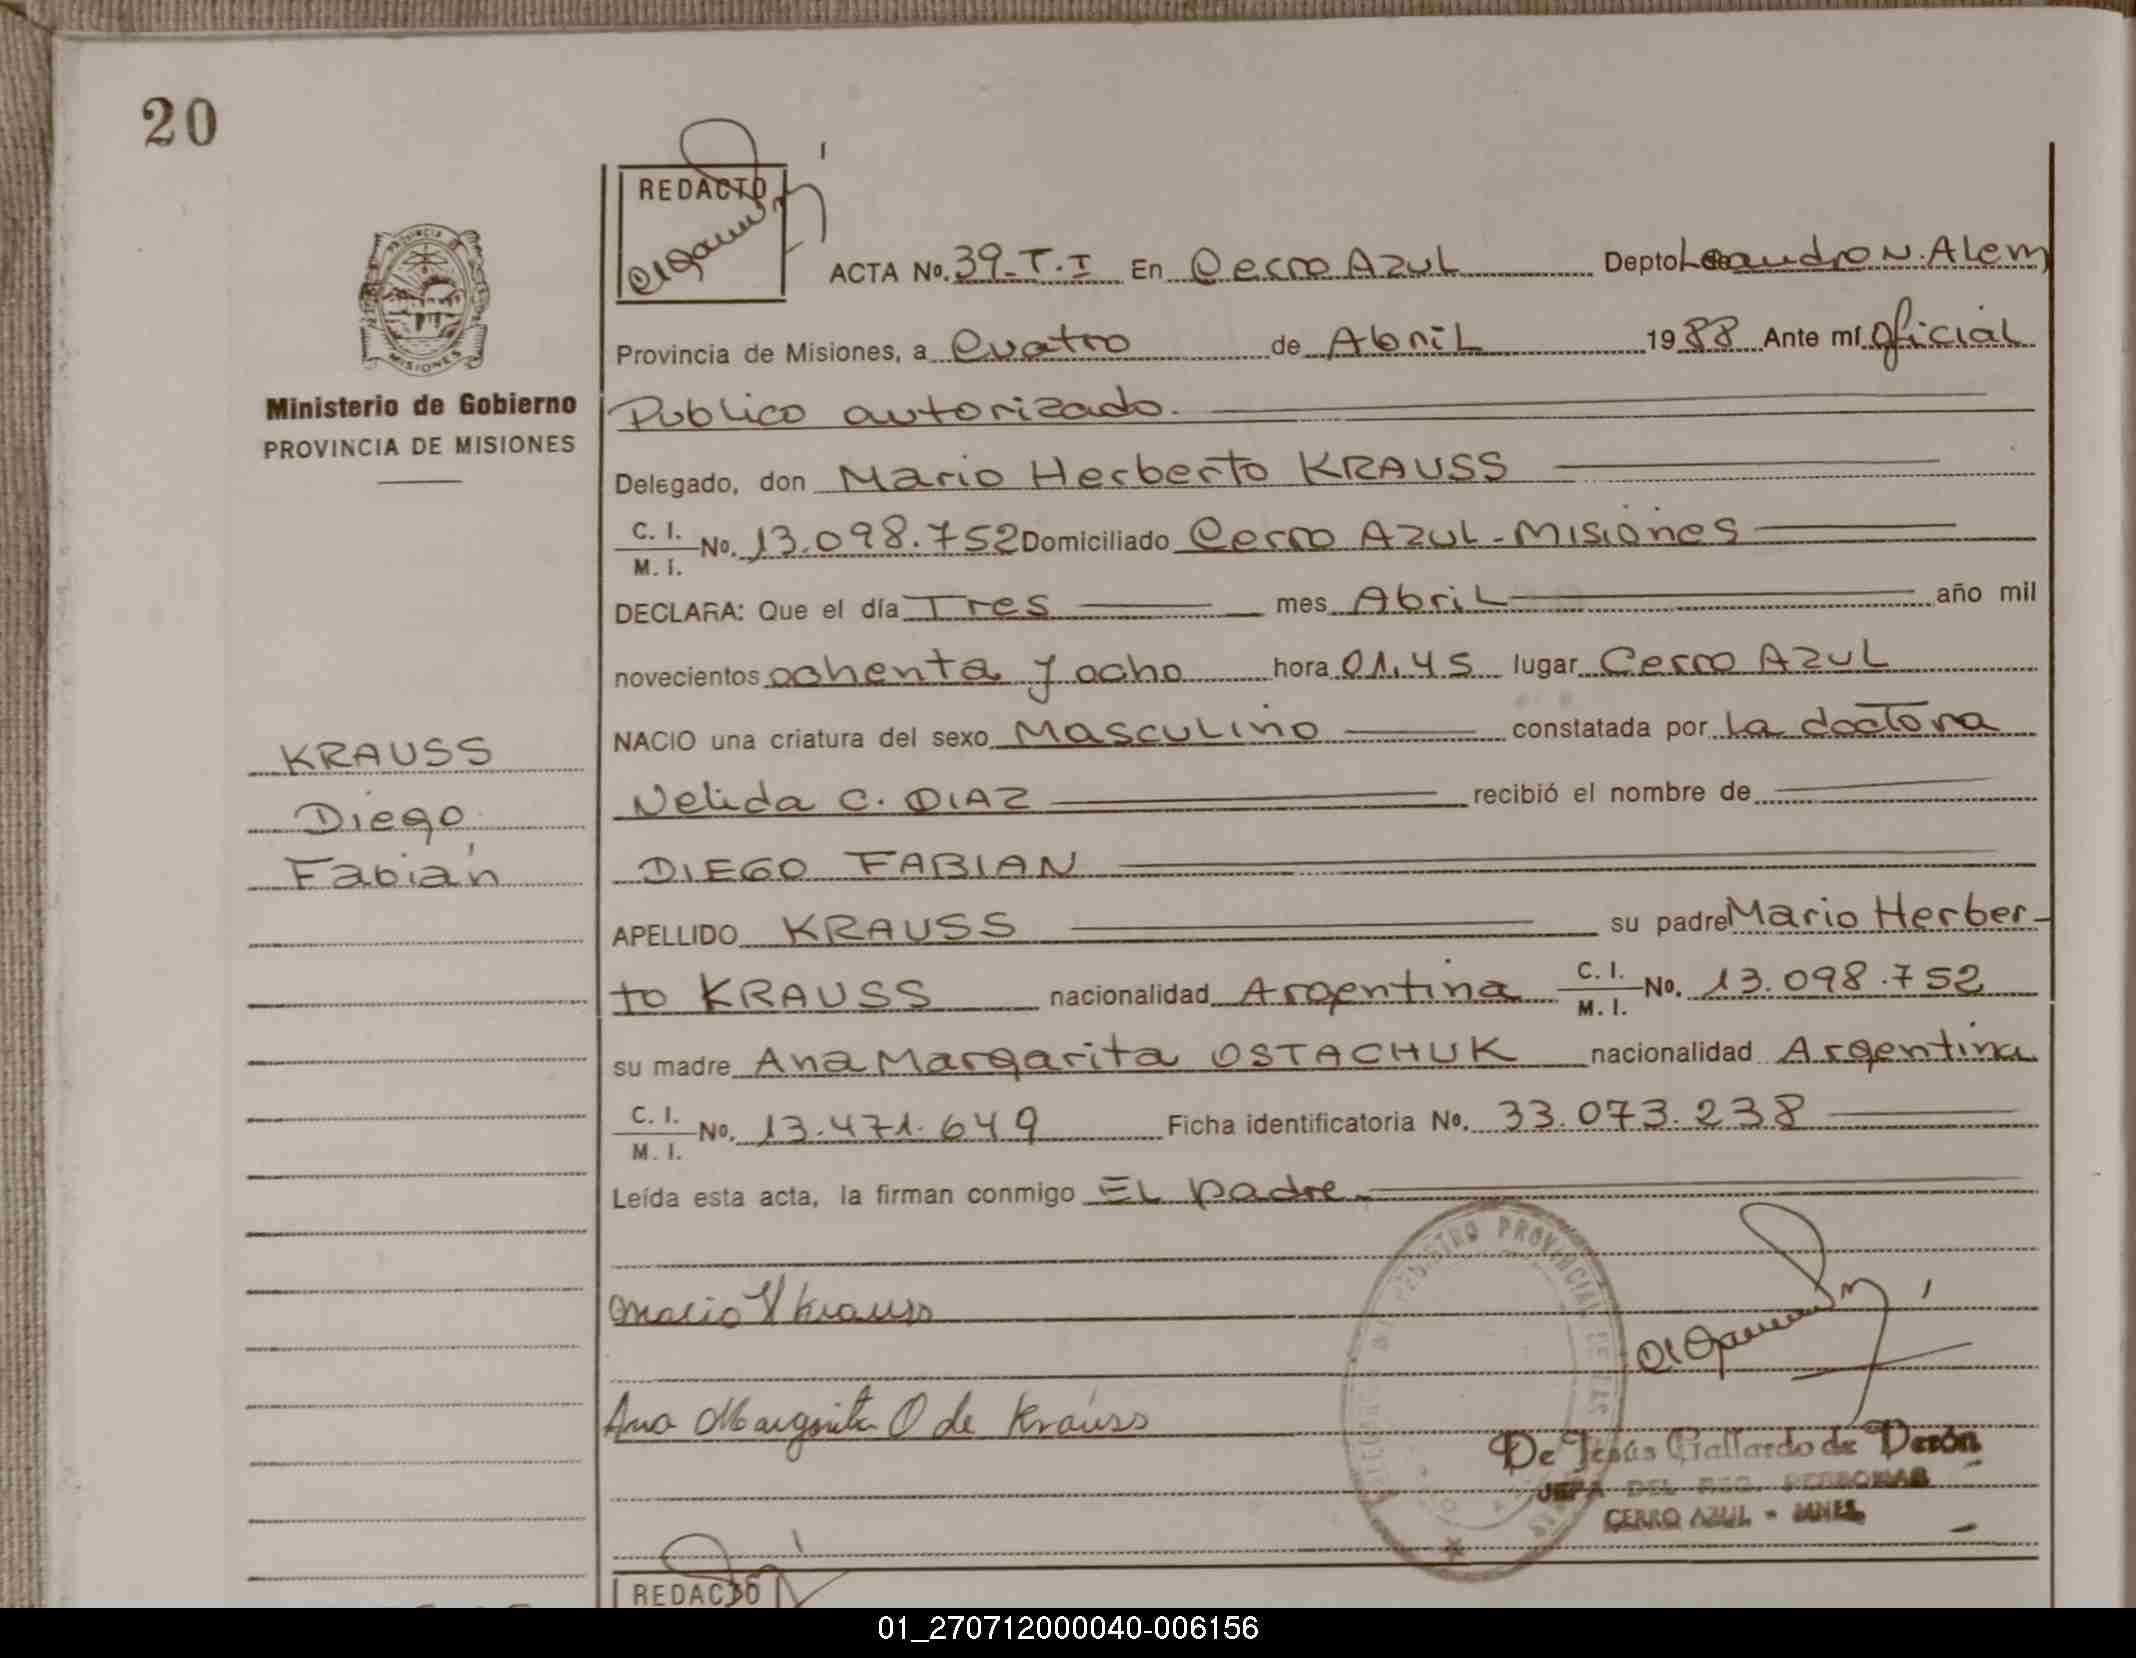 20
REDACTO
ACTA No. 39-T.I En Cerro Azul Depto. de Leandro N. Alem
Provincia de Misiones, a Cuatro de Abril 1988 Ante mí Oficial
Ministerio de Gobierno
PROVINCIA DE MISIONES
Publico autorizado.
Delegado, don Mario Herberto KRAUSS
C. I. M. I. No. 13.098.752 Domiciliado Cerro Azul - Misiones
DECLARA: Que el día Tres mes Abril año mil
novecientos ochenta y ocho hora 01,45 lugar Cerro Azul
NACIO una criatura del sexo Masculino constatada por La doctora
Nelida C. DIAZ recibió el nombre de
KRAUSS
Diego
Fabián
DIEGO FABIAN
APELLIDO KRAUSS su padre Mario Herber-
to KRAUSS nacionalidad Argentina C. I. M. I. No. 13.098.752
su madre Ana Margarita OSTACHUK nacionalidad Argentina
C. I. M. I. No. 13.471.649 Ficha identificatoria No. 33.073.238
Leída esta acta, la firman conmigo El padre
Mario H Krauss
Ana Margarita O de Krauss
De Jesús Gallardo de Verón
JEFA DEL REG.
CERRO AZUL - MNES.
REDACTO
01_270712000040-006156